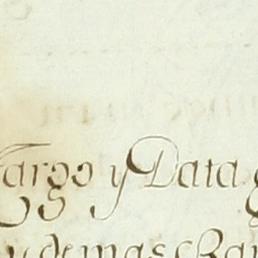 Cargo y Data
y demas